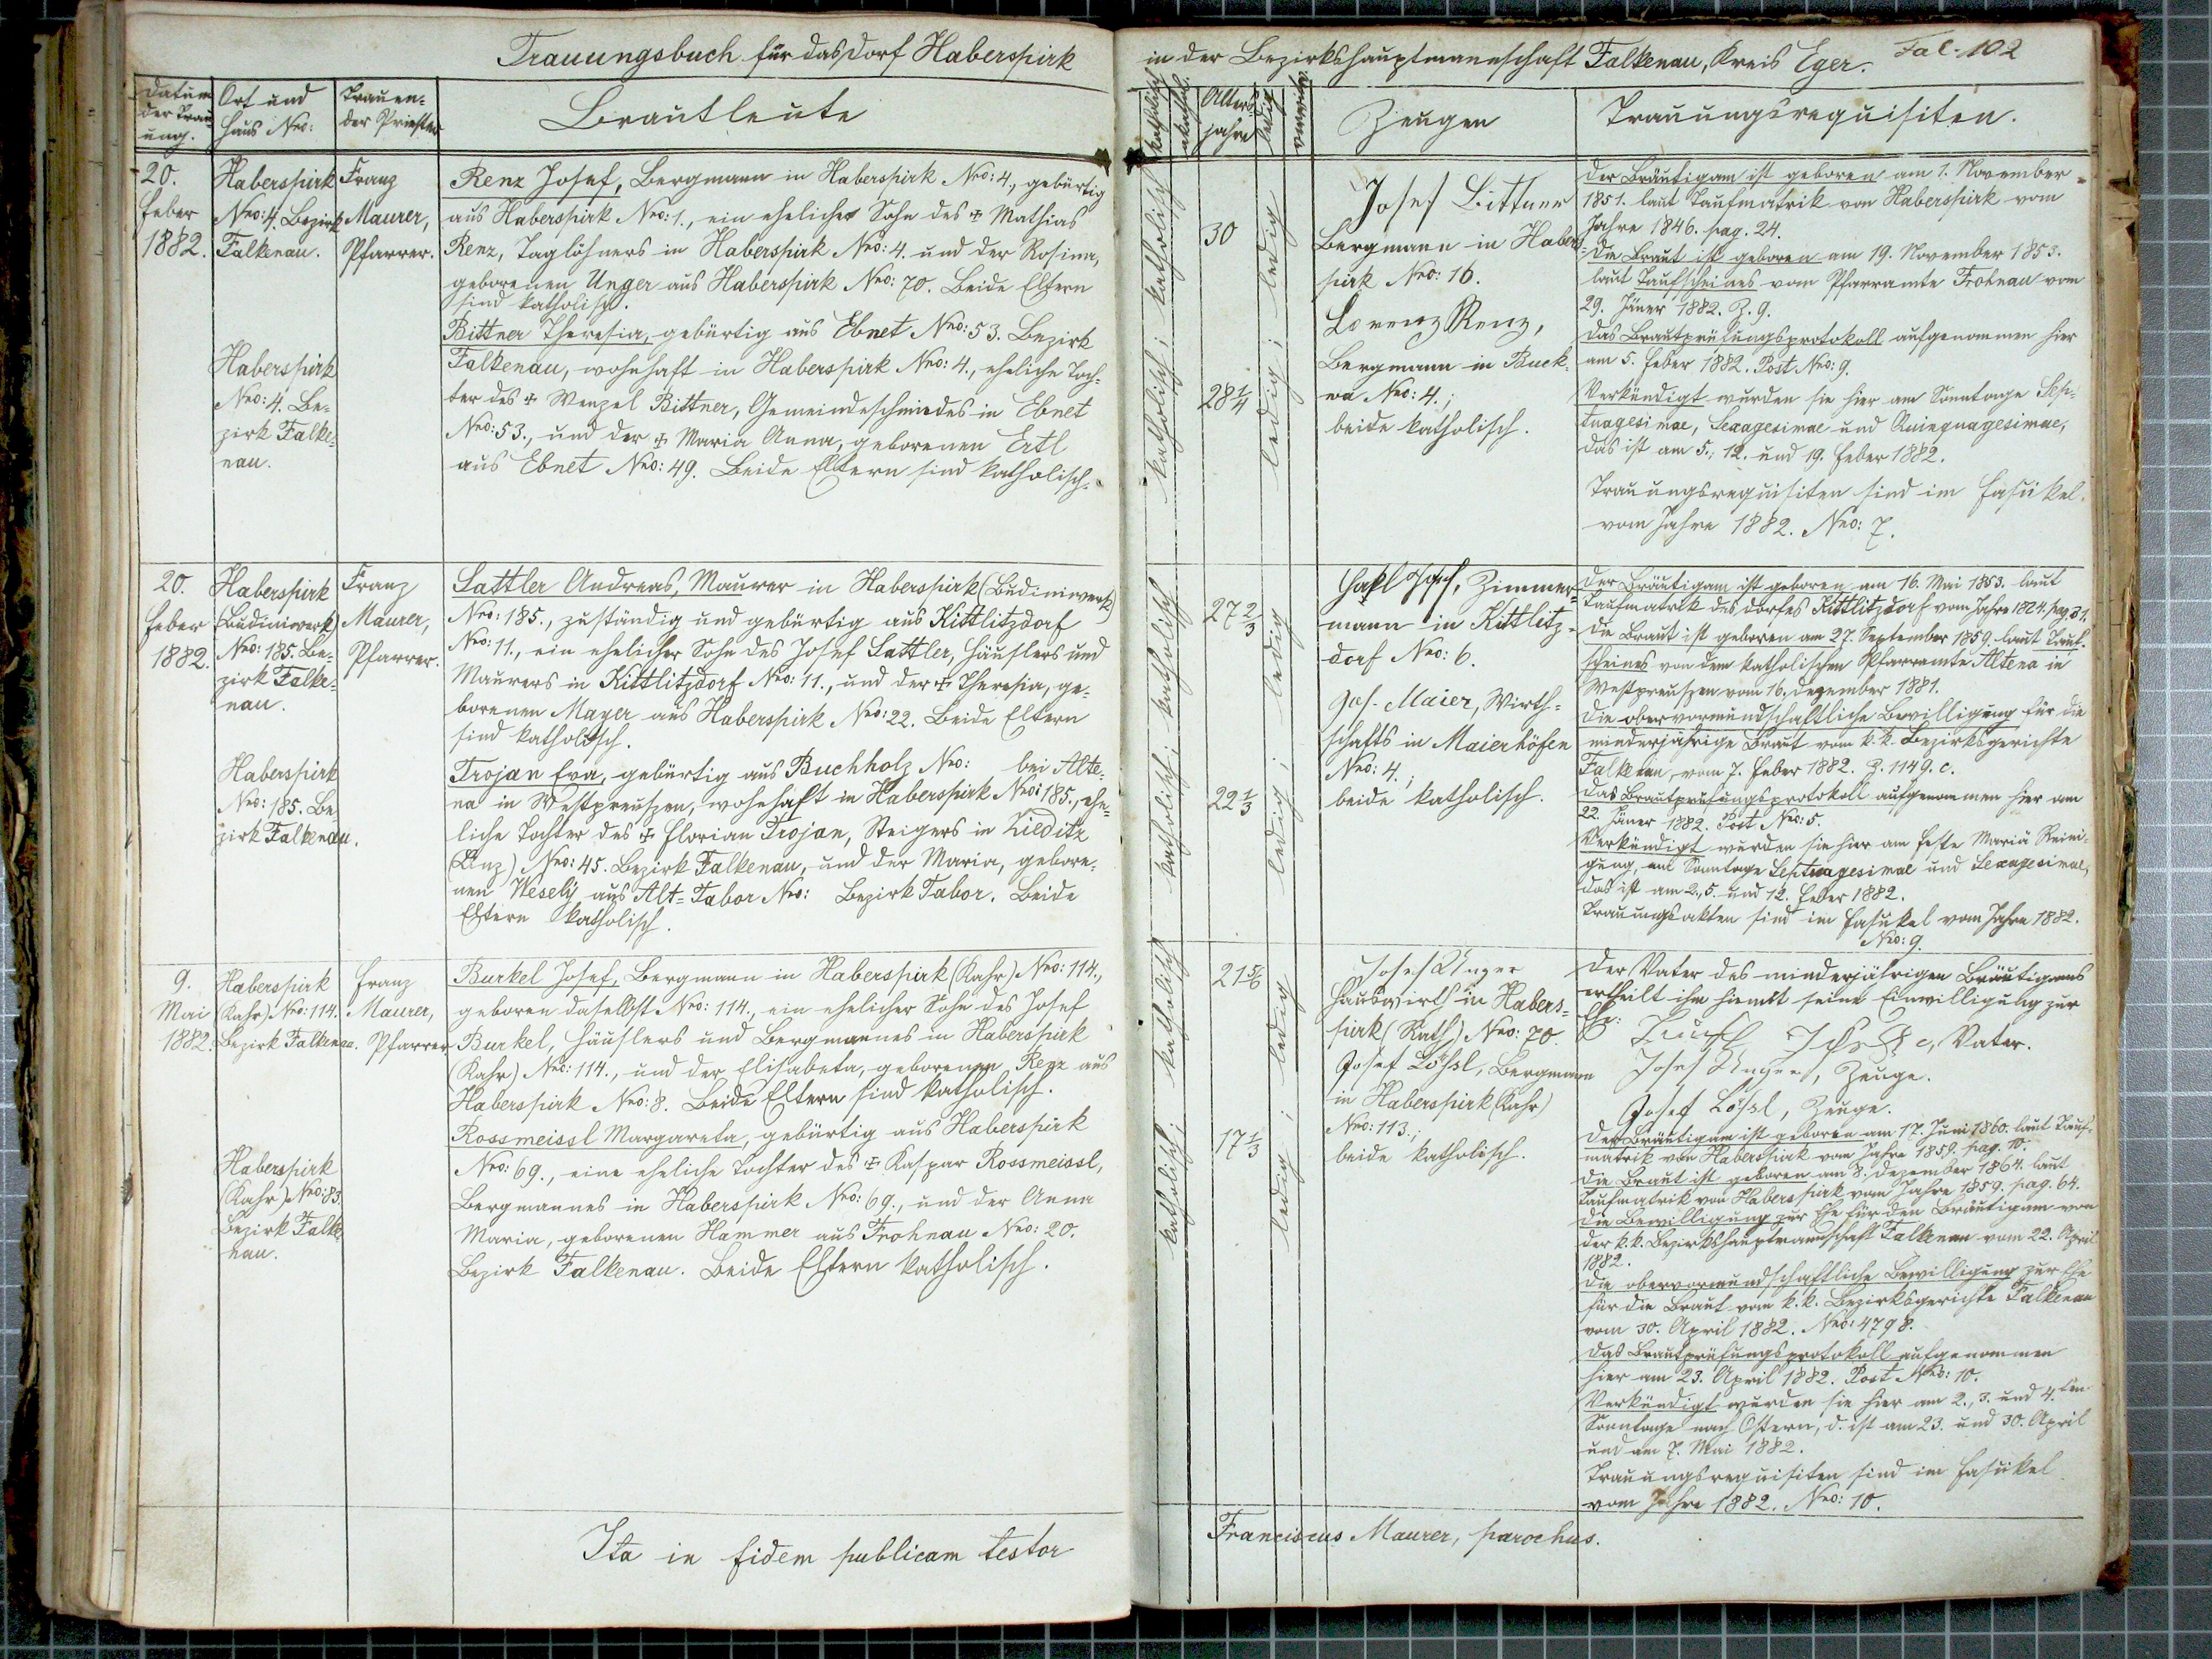 Trauungsbuch für das Dorf Haberspirk
Datum
der Trau-
ung.
Ort und
Haus Nro:
Trauen-
der Priester
Brautleute
20.
Feber
1882.
Haberspirk
Nro: 4. Bezirk
Falkenau.
Franz
Maurer,
Pfarrer.
Renz Josef, Bergmann in Haberspirk Nro: 4., gebürtig
aus Haberspirk Nro: 1., ein ehelicher Sohn des ✠ Mathias
Renz, Taglöhners in Haberspirk Nro: 4. und der Rosina,
geborenen Unger aus Haberspirk Nro: 70. Beide Eltern
sind katholisch.
Haberspirk
Nro: 4. Be-
zirk Falke-
nau.
Bittner Theresia, gebürtig aus Ebnet Nro: 53. Bezirk
Falkenau, wohnhaft in Haberspirk Nro: 4., eheliche Toch-
ter des ✠ Wenzel Bittner, Gemeindeschmiedes in Ebnet
Nro: 53., und der ✠ Maria Anna, geborenen Ertl
aus Ebnet Nro: 49. Beide Eltern sind katholisch.
20.
Feber
1882.
Haberspirk
(Budiniwerk)
Nro: 185. Be-
zirk Falke-
nau.
Franz
Maurer,
Pfarrer.
Sattler Andreas, Maurer in Haberspirk (Budiniwerk)
Nro: 185., zuständig und gebürtig aus Kittlitzdorf
Nro: 11., ein ehelicher Sohn des Josef Sattler, Häuslers und
Maurers in Kittlitzdorf Nro: 11., und der ✠ Theresia, ge-
borenen Mayer aus Haberspirk Nro: 22. Beide Eltern
sind katholisch.
Haberspirk
Nro: 185. Be-
zirk Falkenau.
Trojan Eva, gebürtig aus Buchholz Nro: bei Alte-
na in Westpreußen, wohnhaft in Haberspirk Nro: 185., ehe-
liche Tochter des ✠ Florian Trojan, Steigers in Zieditz
Nro: 45. Bezirk Falkenau, und der Maria, gebore-
nen Weselý aus Alt-Tabor Nro: Bezirk Tabor. Beide
Eltern katholisch.
9.
Mai
1882.
Haberspirk
(Kahr) Nro: 114.
Bezirk Falkenau.
Franz
Maurer,
Pfarrer
Burkel Josef, Bergmann in Haberspirk (Kahr) Nro: 114.,
geboren daselbst Nro: 114., ein ehelicher Sohn des Josef
Burkel, Häuslers und Bergmannes in Haberspirk
(Kahr) Nro: 114., und der Elisabeta, geborenen Renz aus
Haberspirk Nro: 8. Beide Eltern sind katholisch.
Haberspirk
(Kahr) Nro: 83.
Bezirk Falke-
nau.
Rossmeissl Margareta, gebürtig aus Haberspirk
Nro: 69., eine eheliche Tochter des ✠ Kaspar Rossmeissl,
Bergmannes in Haberspirk Nro: 69., und der Anna
Maria, geborenen Hammer aus Frohnau Nro: 20.
Bezirk Falkenau. Beide Eltern katholisch.
Ita in fidem publicam testor
in der Bezirkshauptmannschaft Falkenau, Kreis Eger.
Fal-102
katholisch
akathol.
Alters
jahre
ledig
verwitw.
Zeugen
Trauungsrequisiten.
katholisch; katholisch
30
28 1/4
ledig; ledig
Josef Bittner
Bergmann in Haber-
spirk Nro: 16.
Lorenz Renz,
Bergmann in Buck-
wa Nro: 4.;
beide katholisch.
Der Bräutigam ist geboren am 1. November
1851. laut Taufmatrik von Haberspirk vom
Jahre 1846. pag. 24.
Die Braut ist geboren am 19. November 1853.
laut Taufscheines vom Pfarramte Frohnau vom
29. Jäner 1882. Z. 9.
Das Brautprüfungsprotokoll aufgenommen hier
am 5. Feber 1882. Post Nro: 9.
Verkündigt wurden sie hier am Sonntage Sep-
tuagesimae, Sexagesimae und Quinquagesimae,
das ist am 5., 12. und 19. Feber 1882.
Trauungsrequisiten sind im Fasükel
vom Jahre 1882. Nro: 7.
katholisch; katholisch
27 2/3
22 1/3
ledig; ledig
Josef, Zimmer-
mann in Kittlitz-
dorf Nro: 6.
Jos. Maier, Wirth-
schafts in Maierhöfen
Nro: 4.;
beide katholisch.
Der Bräutigam ist geboren am 16. Mai 1853. laut
Taufmatrik des Dorfes Kittlitzdorf vom Jahre 1824. pag. 31.
Die Braut ist geboren am 27. September 1859. laut Tauf-
scheines von dem katholischen Pfarramte Altena in
Westpreußen vom 16. Dezember 1881.
Die obervormundschaftliche Bewilligung für die
minderjährige Braut vom k. k. Bezirksgerichte
Falkenau, vom 7. Feber 1882. Z. 1149. c.
Das Brautprüfungsprotokoll aufgenommen hier am
22. Jäner 1882. Post Nro: 5.
Verkündigt wurden sie hier am Feste Mariä Reini-
gung, am Sonntage Septuagesimae und Sexagesimae,
das ist am 2., 5. und 12. Feber 1882.
Trauungsakten sind im Fasükel vom Jahre 1882.
Nro: 9.
katholisch; katholisch
21 5/6
17 1/3
ledig; ledig
Josef Unger
Hauswirth in Habers-
pirk (Rath) Nro: 70.
Josef Lößl, Bergmann
in Haberspirk (Kahr)
Nro: 113.;
beide katholisch.
Der Vater des minderjährigen Bräutigams
ertheilt ihm hiemit seine Einwilligung zur
Ehe:
Vater.
Josef Unger, Zeuge.
Josef Lößl, Zeuge.
Der Bräutigam ist geboren am 17. Juni 1860. laut Tauf-
matrik von Haberspirk vom Jahre 1859. pag. 10.
Die Braut ist geboren am 8. Dezember 1864. laut
Taufmatrik von Haberspirk vom Jahre 1859. pag. 64.
Die Bewilligung zur Ehe für den Bräutigam von
der k. k. Bezirkshauptmannschaft Falkenau vom 22. April
1882.
Die obervormundschaftliche Bewilligung zur Ehe
für die Braut vom k. k. Bezirksgerichte Falkenau
vom 30. April 1882. Nro: 4798.
Das Brautprüfungsprotokoll aufgenommen
hier am 23. April 1882. Post Nro: 10.
Verkündigt wurden sie hier am 2., 3. und 4.ten
Sonntage nach Ostern, d. ist am 23. und 30. April
und am 7. Mai 1882.
Trauungsrequisiten sind im Fasükel
vom Jahre 1882. Nro: 10.
Franciscus Maurer, parochus.